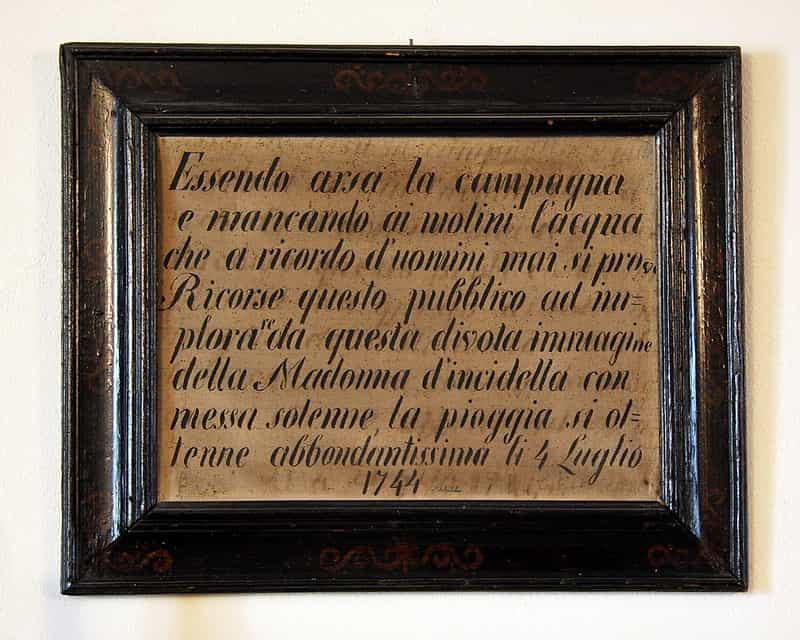 Essendo arsa la campagna
e mancando ai molini l'acqua
che a ricordo d'uomini mai si provò
Ricorse questo pubblico ad im=
plorare da questa divota immagine
della Madonna d'incidella con
messa solenne, la pioggia si ot=
tenne abbondantissima li 4 Luglio
1744